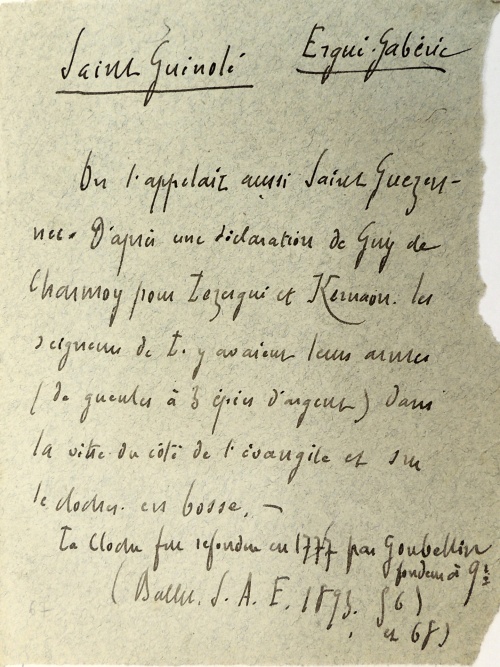 Saint Guinolé Ergué-Gabéric
On l'appelait aussi Saint Guezen-
nec. D'après une déclaration de Guy de
Charmoy pour Lezergué et Kernaon. les
seigneurs de L. y avaient leurs armes
(de gueules à 3 épées d'argent) dans
la vitre du côté de l'évangile et sur
le clocher en bosse. —
La cloche fut refondue en 1777 par Goubellin
fondeur à
(Bullet. S. A. E. 1893. 56)
et 68)
67